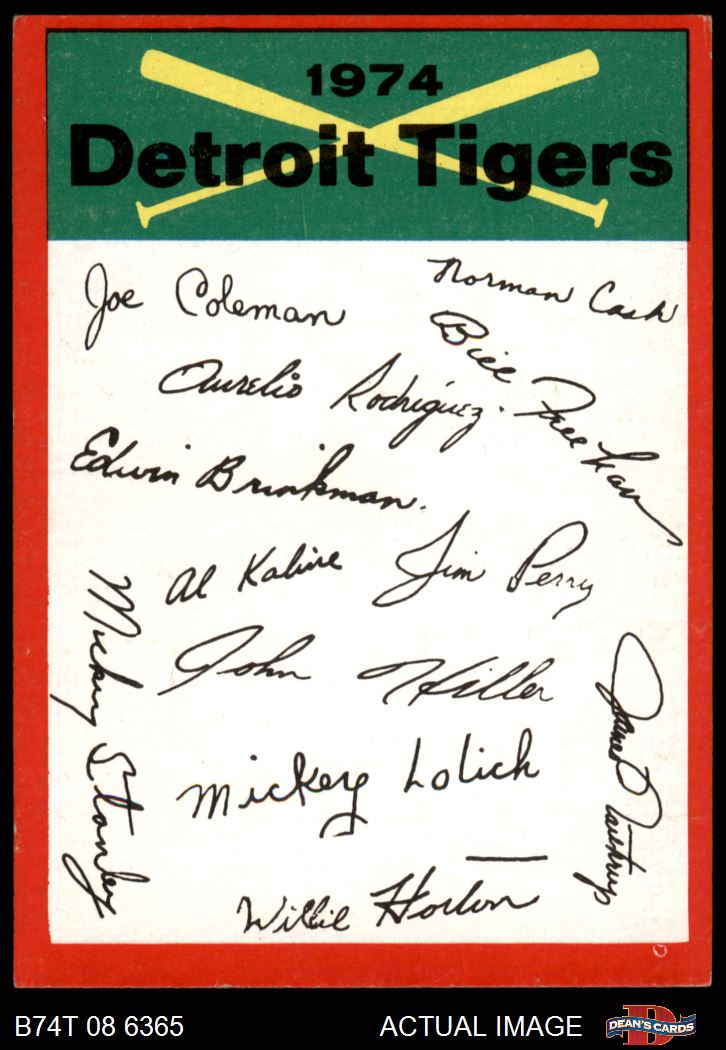 1974
Detroit Tigers
Joe Coleman
Norman Cash
Aurelio Rodriguez.
Bill Freehan
Edwin Brinkman.
Al Kaline
Jim Perry
Mickey Stanley
John Hiller
James Northrup
Mickey Lolich
Willie Horton
B74T 08 6365
ACTUAL IMAGE
D
DEAN'S CARDS